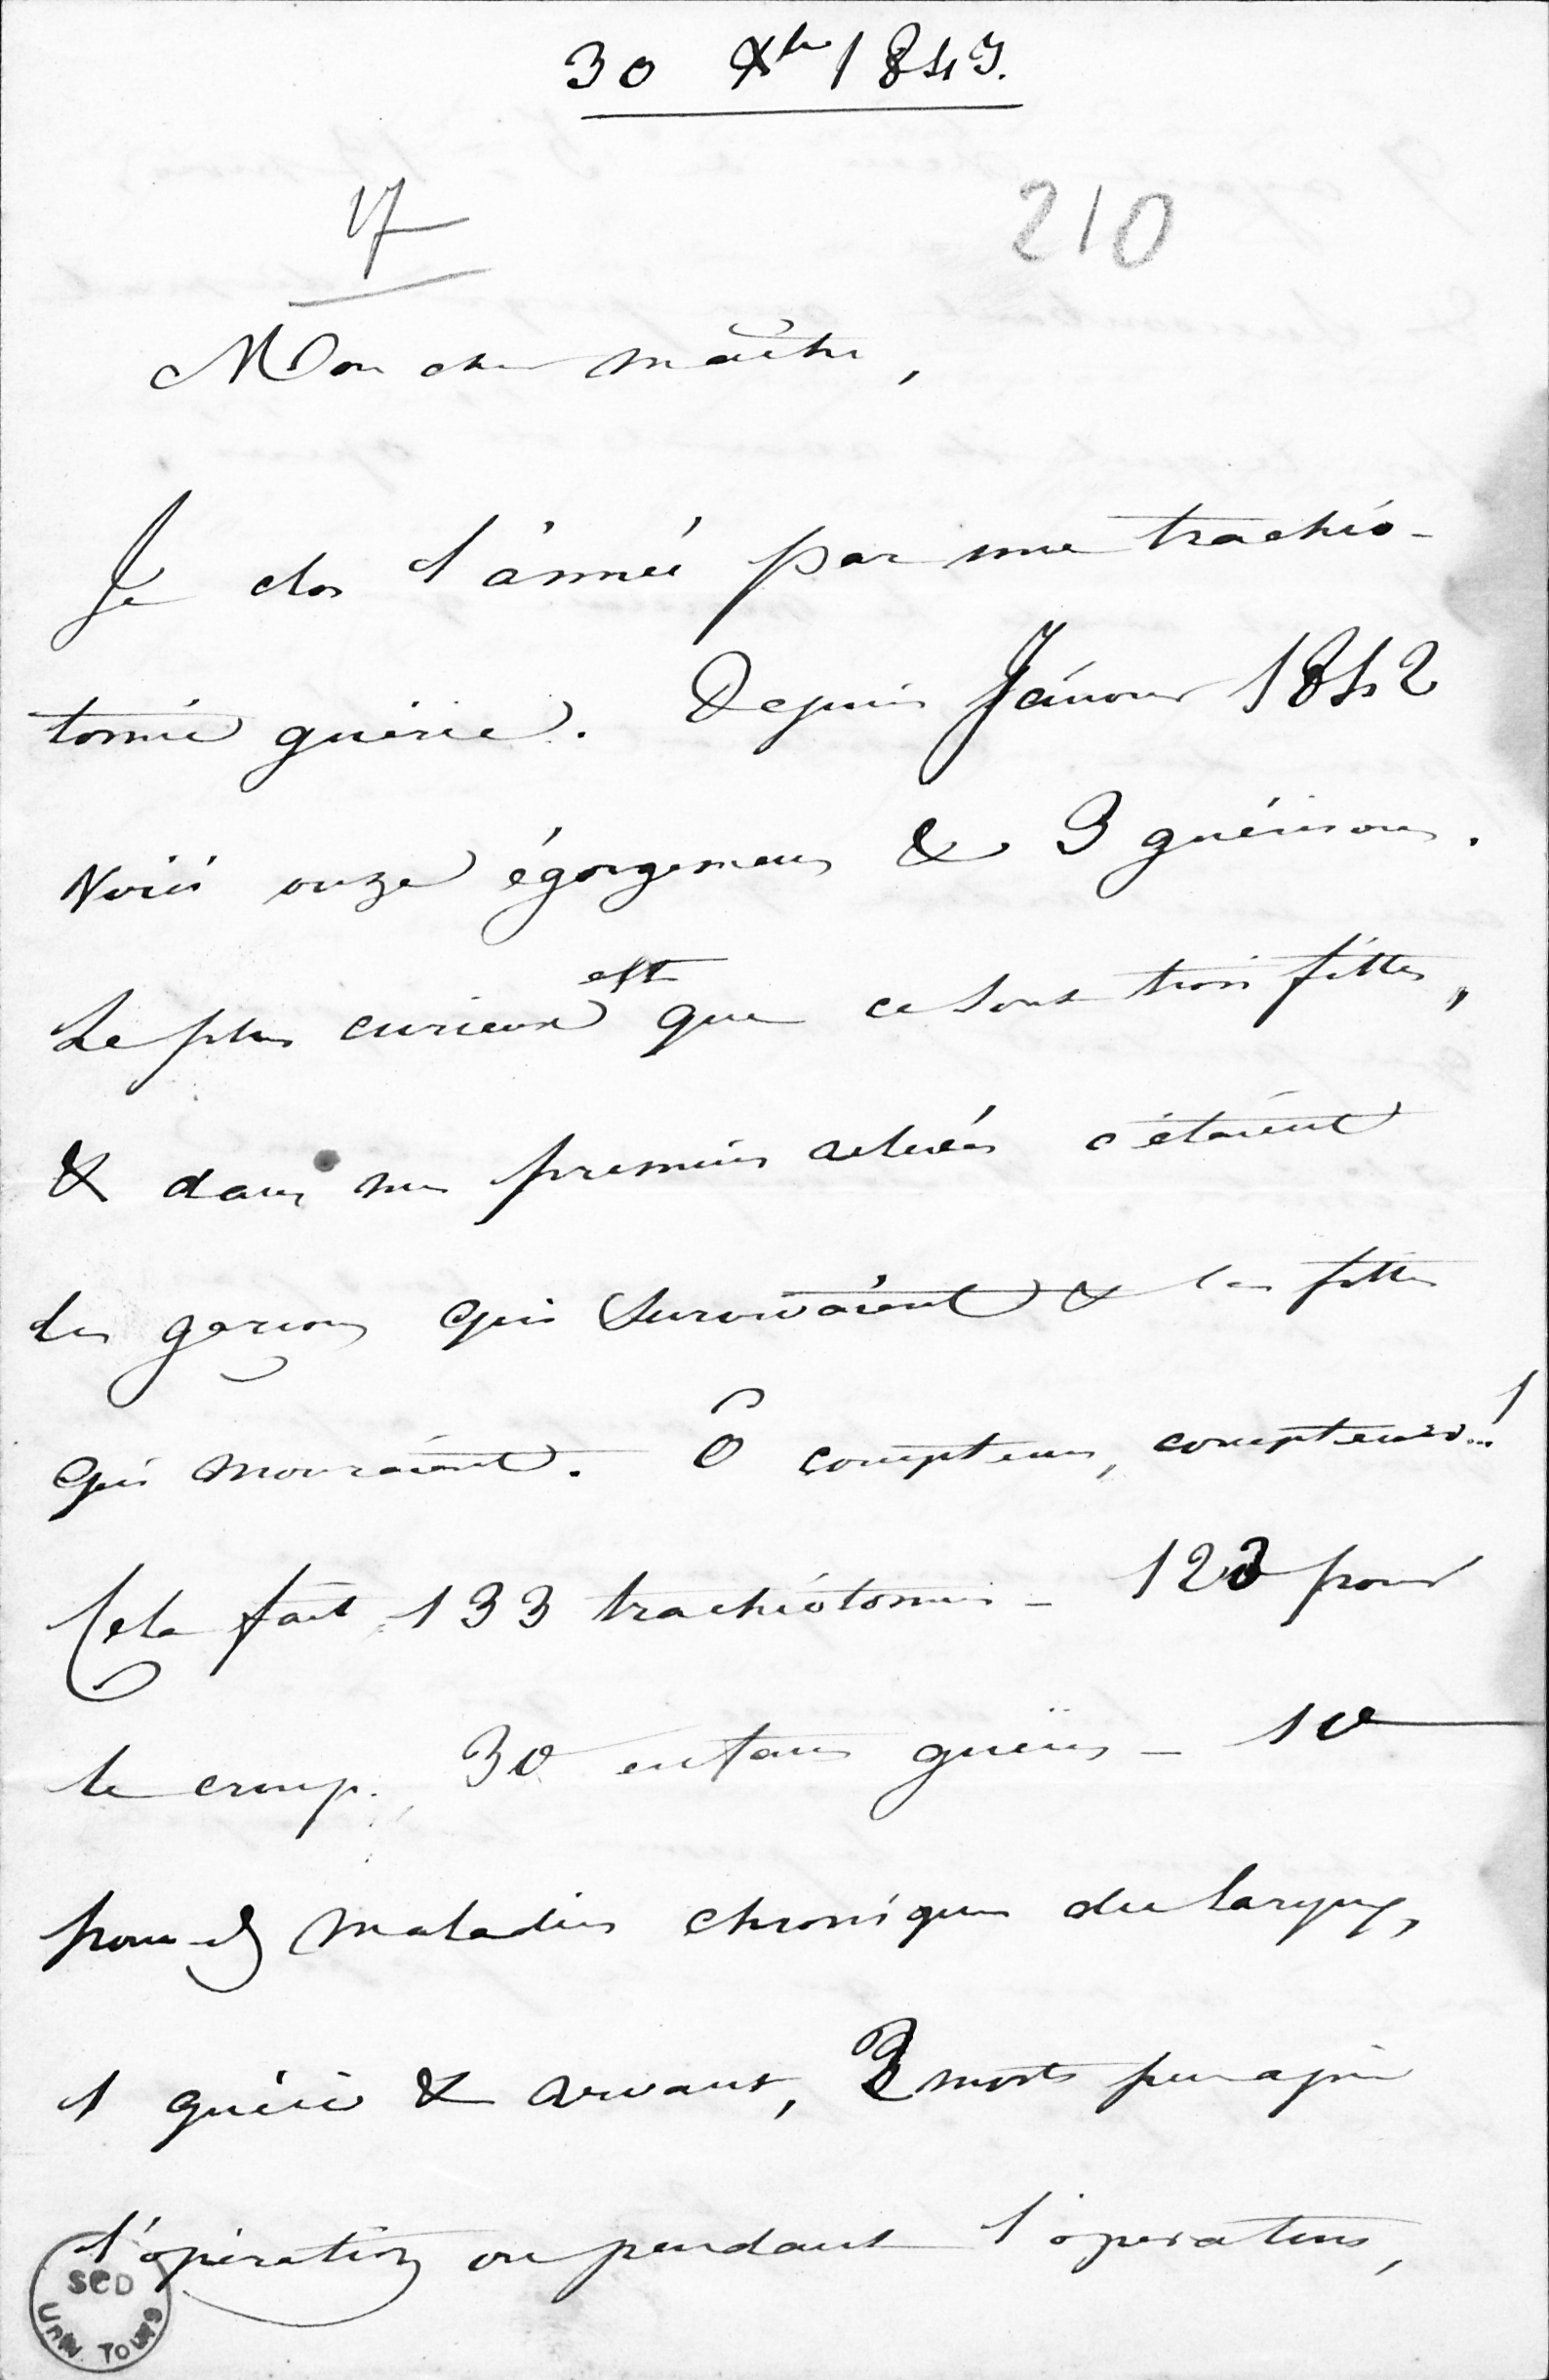 30 Xbre 1843.
17
210
Mon cher maître,
Je clos l'année par une trachéo-
tomie guérie. Depuis Janvier 1842
Voici onze égorgemens & 3 guérisons.
est
Le plus curieux que ce sont trois filles,
& dans mes premiers c'étaient
des garçons qui survivaient & les filles
qui mouraient. Ô compteurs, compteurs...!
Cela fait 133 trachéotomies - 123 pour
le croup. 30 enfans guéris - 10
pour des maladies chroniques du larynx,
1 guéri & vivant, morts peu après
l'opération ou pendant l'opération,
SCD
UNIV. TOURS